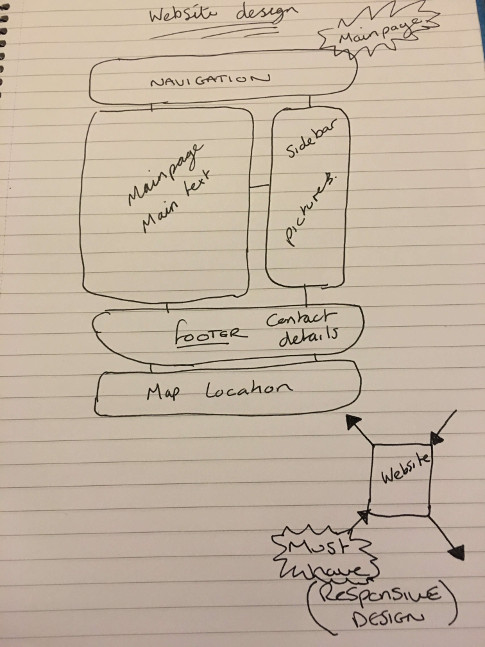 Website design
Mainpage
NAVIGATION
Mainpage
Main text
Sidebar
pictures.
FOOTER
Contact
details
Map Location
Website
Must
have
(RESPONSIVE
DESIGN)